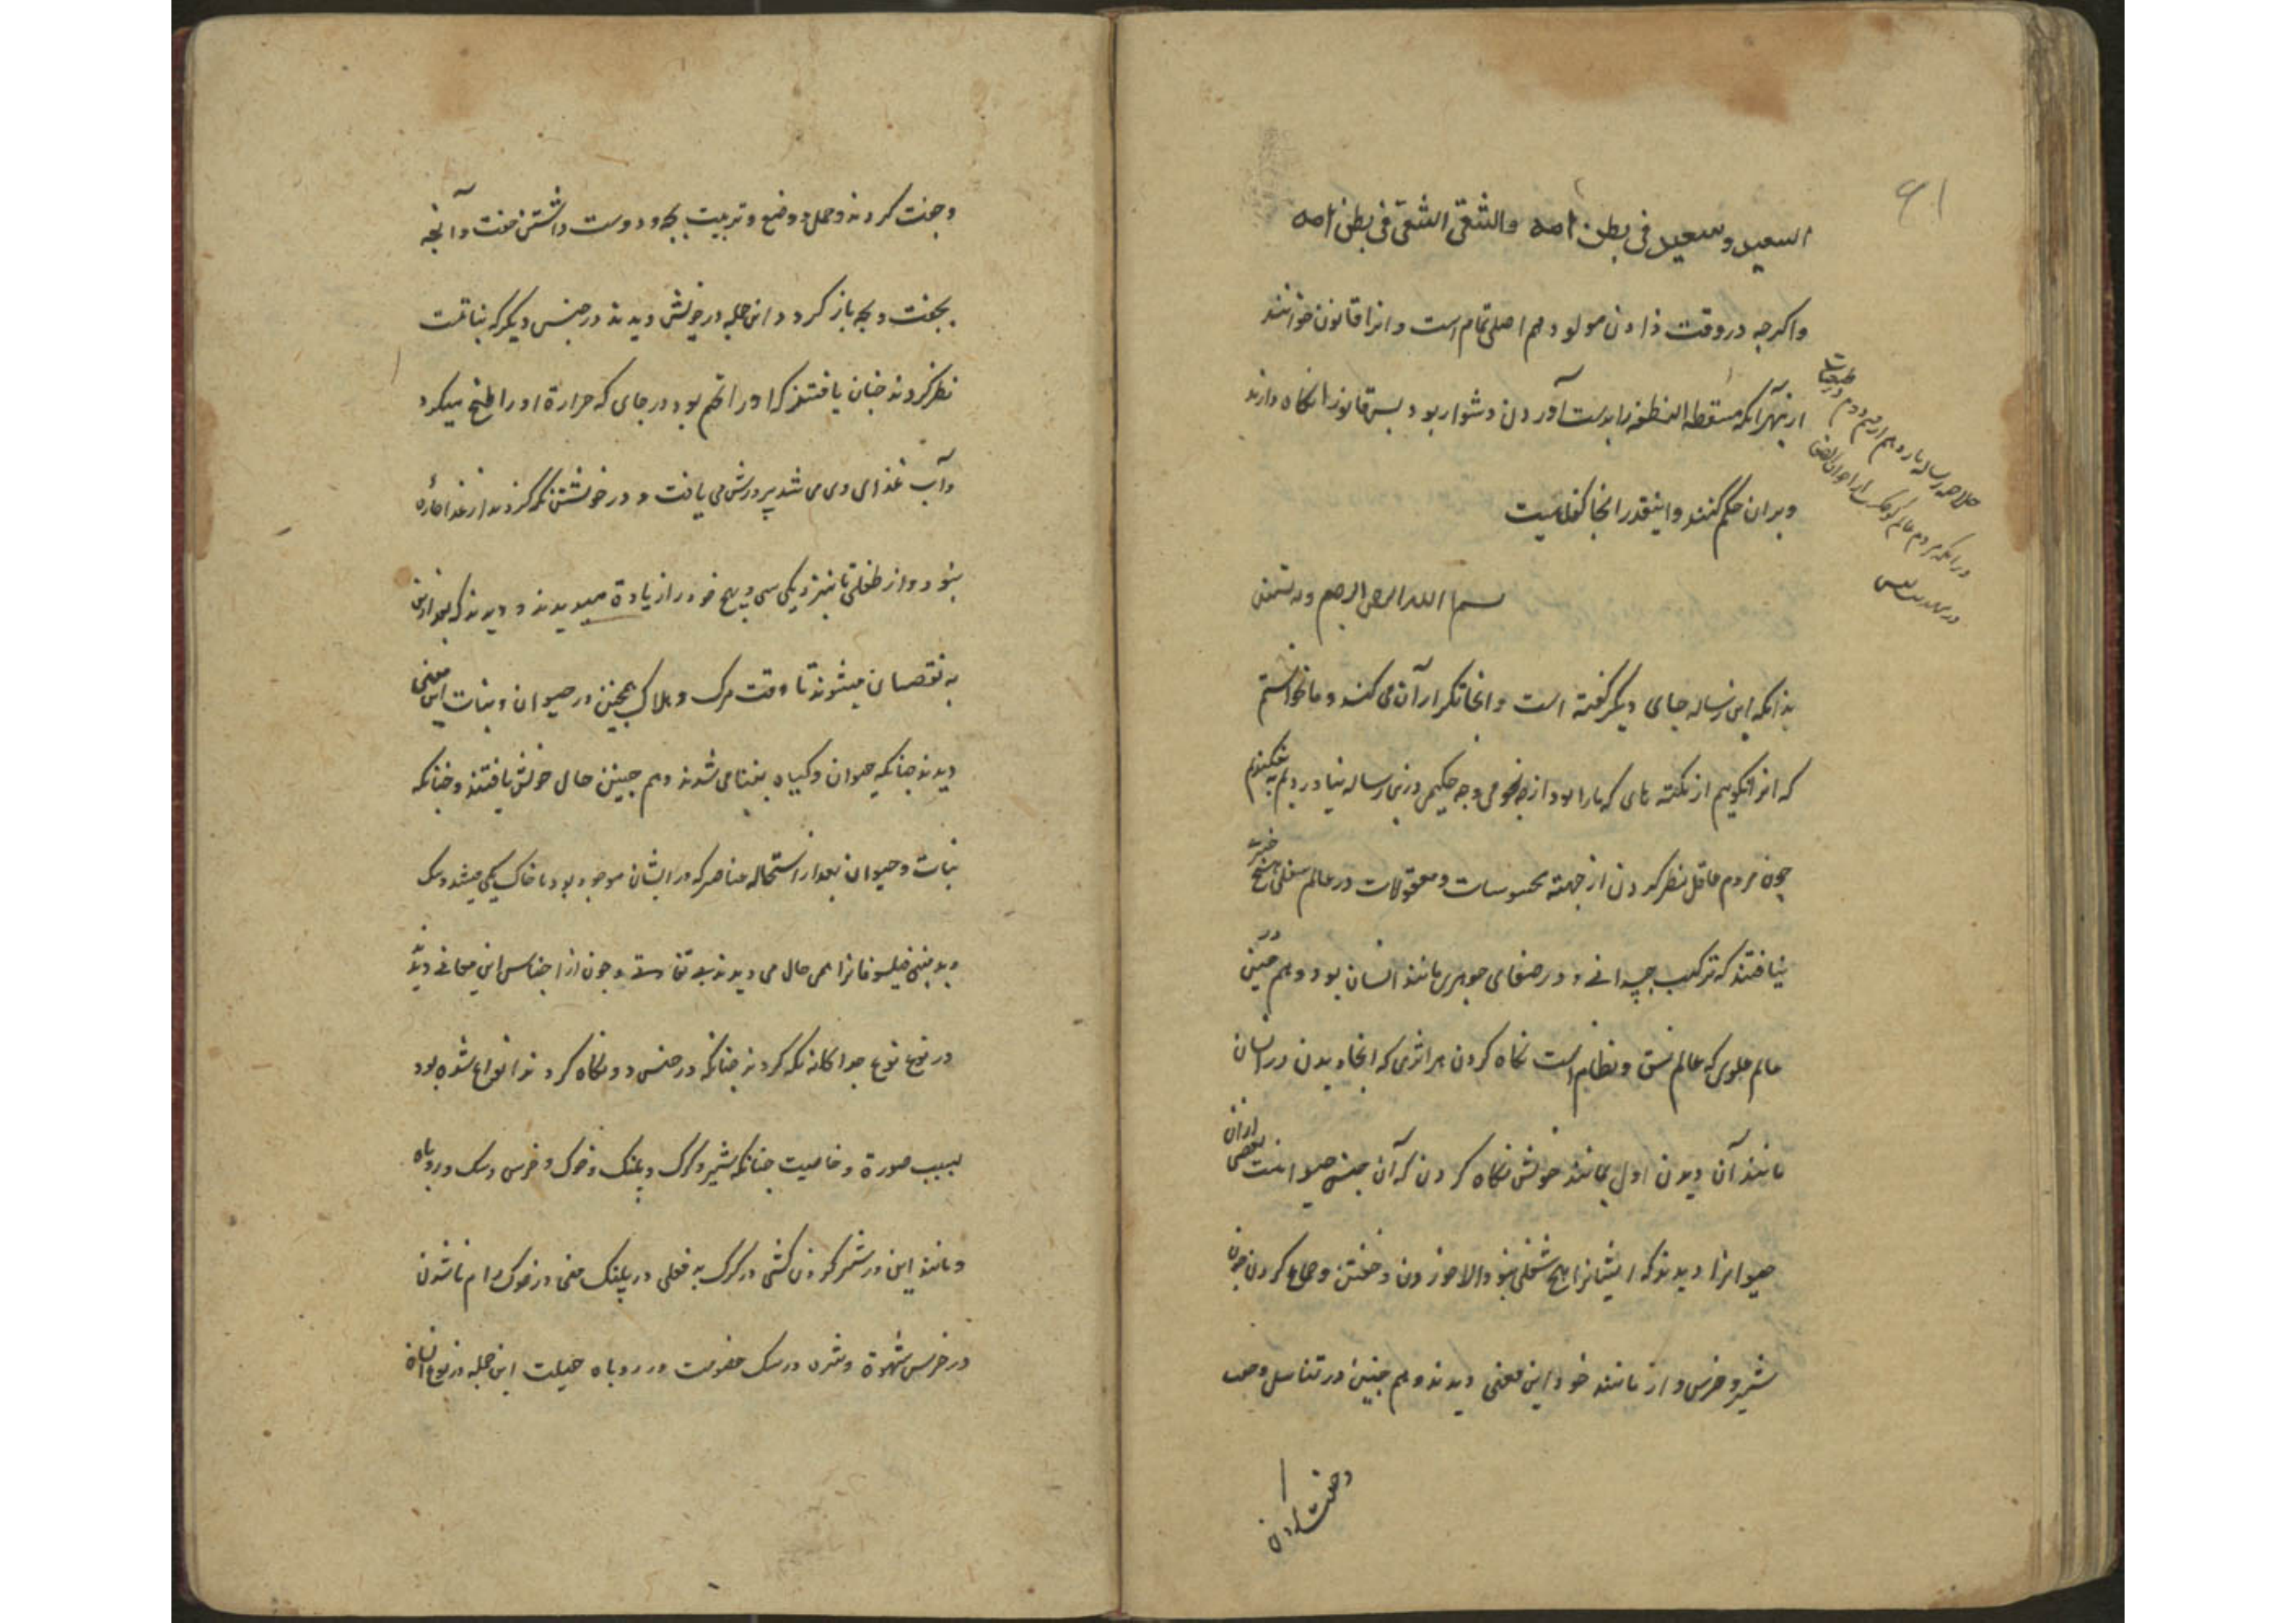 ۶۱
السعید و سعید فی بطن امه والشقی الشقی فی بطن امه
واکرچه در وقت زادن مولود هم اصلی تمام است و انرا قانون خوانند
از بهر آنکه مسقطه النطفه را بدست آوردن دشوار بود بس قانون را نکاه دارند
و بران حکم کنند و اینقدر انجا کفایتست
خلاصه رساله یازدهم از قسم دوم در طبیعیات
در انکه مردم عالم کوجک است از اخوان الصفا
بسم الله الرحمن الرحیم و به نستعین
بدانکه این رساله جای دیکر کفته است و انجا تکرار آن می کند و ما نخواستیم
که انرا نکویم از نکته های که ما را بود از چه نجومی و چه حکیمی درین رساله بیاوردیم
چون مردم عاقل نظر کردن از جهته محسوسات و معقولات در عالم سفلی هیچ چیز
نیافتند که ترکیب جسدانی و در صفای جوهری مانند انسان بود و هم چنین در
عالم علوی که عالم نسق و نظام است نکاه کردن هر اثری که انجا دیدن در انسان
مانند آن دیدن اول بمانند خویش نکاه کردن که آن جنس حیوانست بعضی ازان
حیوانرا دیدند که ایشانرا هیچ شغلی نبود الا خوردن و خفتن و جماع کردن چون
شیر و خرس و از مانند خود این معنی دیدند و هم چنین در تناسل و حب
و جفت کردن
و جفت کردند و حمل و وضع و تربیت بچه و دوست داشتن جفت و آنچه
بجفت و بچه باز کردد این جمله در خویش دیدند در جنس دیکر که نباتست
نظر کردند چنان یافتند که او را تخم بود در جای که حرارة او را طبخ میکرد
و آب غذای وی می شد پرورش می یافت و در خویشتن نکه کردند از غذا چاره
نبود و از طفلی تا بنزدیکی سی و پنج خود را زیادة میدیدند و دیدند که بعد ازین
به نقصان میشوند تا وقت مرک و هلاک همچنین در حیوان و نبات این معنی
دیدند چنانکه حیوان و کیاه بفنا می شدند و هم چنین حال خویش یافتند و چنانکه
نبات و حیوان بعد از استحاله عناصر که در ایشان موجود بود با خاک یکی میشد و سک
و بد مبنی فیلسوفانرا همی حال می دیدند بی تفاوتی و چون از اجناس این معانی دیدند
در نوع نوع جداکانه نکه کردند چنانکه در جنس و نکاه کردند انواع شده بود
بسبب صورة و خاصیت چنانکه شیر و کرک و پلنک و خوک و خرس و سک و روباه
و مانند این در شیر کردن کشی در کرک بد فعلی در پلنک منی در خوک رام ناشدن
در خرس شهوة و شره در سک خصومت در روباه حیلت این جمله در نوع انسان